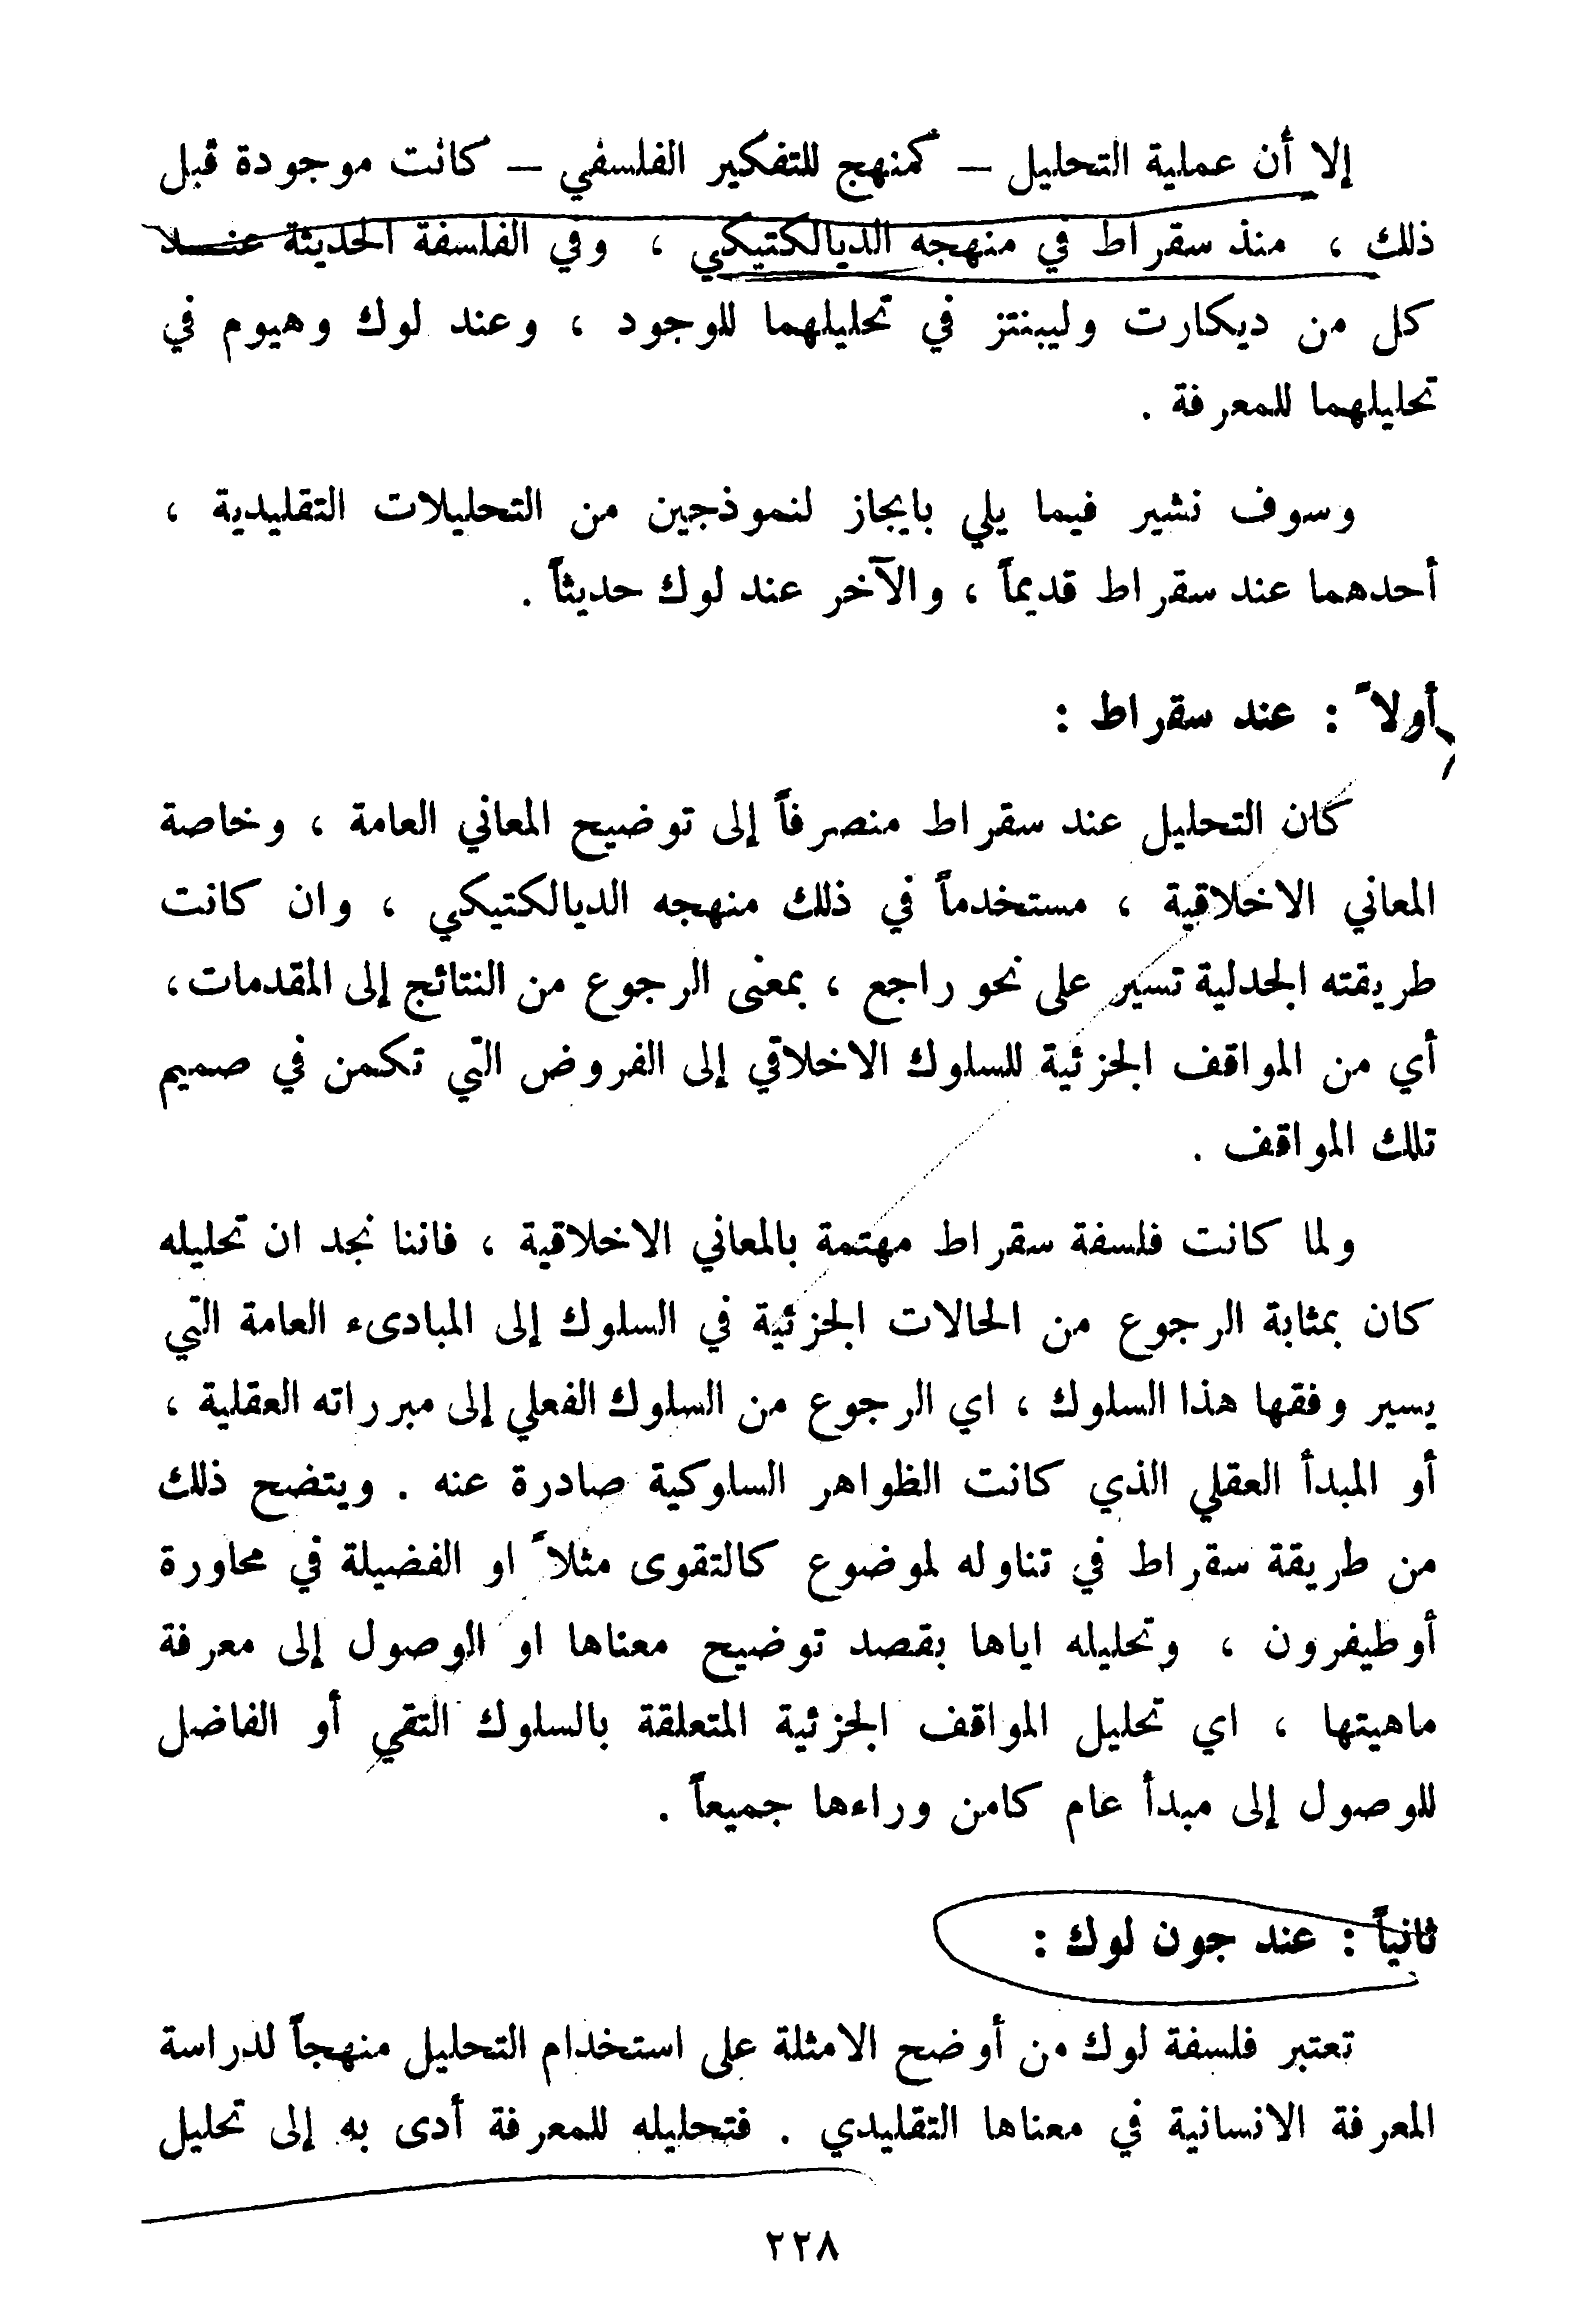 إلا أن عملية التحليل – كمنهج للتفكير الفلسفي – كانت موجودة قبل
ذلك ، منذ سقراط في منهجه الديالكتيكي ، وفي الفلسفة الحديثة عند
كل من ديكارت وليبنتز في تحليلهما للوجود ، وعند لوك وهيوم في
تحليلهما للمعرفة .
وسوف نشير فيما يلي بايجاز لنموذجين من التحليلات التقليدية ،
أحدهما عند سقراط قديماً ، والآخر عند لوك حديثاً .
أولاً : عند سقراط :
كان التحليل عند سقراط منصرفاً إلى توضيح المعاني العامة ، وخاصة
المعاني الاخلاقية ، مستخدماً في ذلك منهجه الديالكتيكي ، وان كانت
طريقته الجدلية تسير على نحو راجع ، بمعنى الرجوع من النتائج إلى المقدمات ،
أي من المواقف الجزئية للسلوك الاخلاقي إلى الفروض التي تكمن في صميم
تلك المواقف .
ولما كانت فلسفة سقراط مهتمة بالمعاني الاخلاقية ، فاننا نجد ان تحليله
كان بمثابة الرجوع من الحالات الجزئية في السلوك إلى المبادىء العامة التي
يسير وفقها هذا السلوك ، اي الرجوع من السلوك الفعلي إلى مبرراته العقلية ،
أو المبدأ العقلي الذي كانت الظواهر السلوكية صادرة عنه . ويتضح ذلك
من طريقة سقراط في تناوله لموضوع كالتقوى مثلاً او الفضيلة في محاورة
أوطيفرون ، وتحليله اياها بقصد توضيح معناها او الوصول إلى معرفة
ماهيتها ، اي تحليل المواقف الجزئية المتعلقة بالسلوك التقي أو الفاضل
للوصول إلى مبدأ عام كامن وراءها جميعاً .
ثانياً : عند جون لوك :
تعتبر فلسفة لوك من أوضح الامثلة على استخدام التحليل منهجاً لدراسة
المعرفة الانسانية في معناها التقليدي . فتحليله للمعرفة أدى به إلى تحليل
٢٢٨